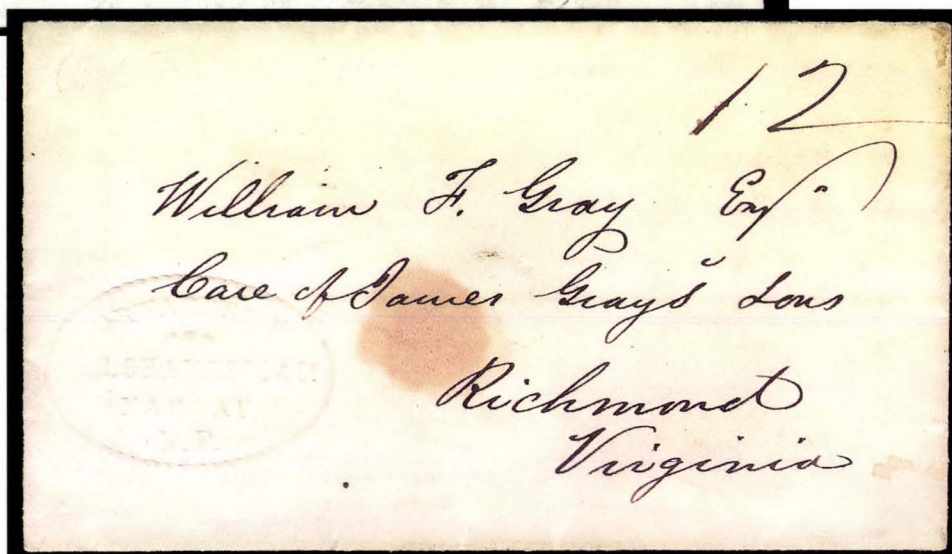 12
William F. Gray Esqr
Care of James Gray's Sons
Richmond
Virginia